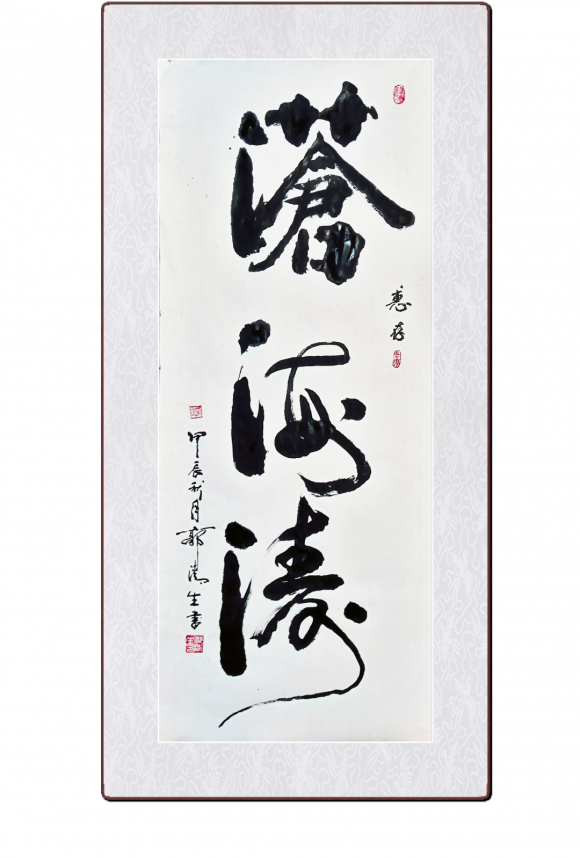 惠存
滄海濤
甲辰秋月郭生書